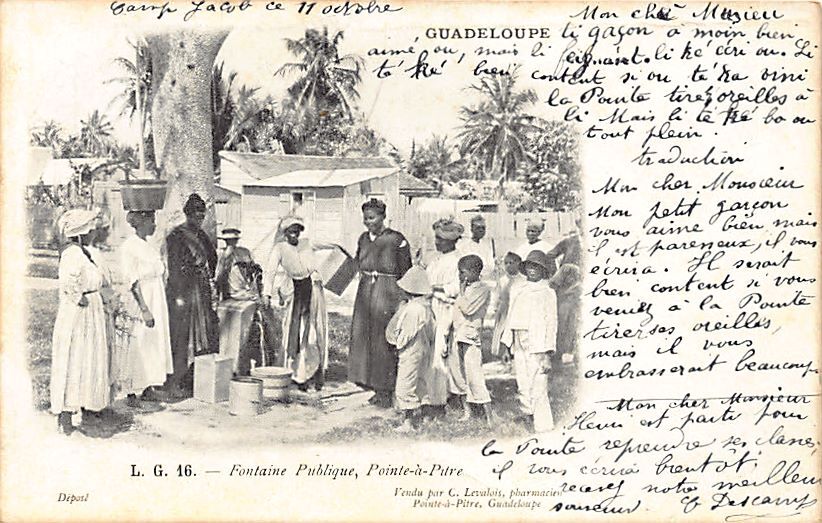 Camp Jacob ce 11 octobre
GUADELOUPE
Mon ché Mucieu
ti gaçon a moin bien
aimé ou, mais li feignant. li ké écri ou. Li
té ké bien content si ou té ka vini
la Pointe tiré oreilles à
li Mais li té ké bo ou
tout plein.
traduction
Mon cher Monsieur
Mon petit garçon
vous aime bien mais
il est paresseux, il vous
écrira. Il serait
bien content si vous
veniez à la Pointe
tirer ses oreilles,
mais il vous
embrasserait beaucoup
Mon cher Monsieur
Henri est parti pour
la Pointe reprendre ses classes,
il vous écrira bientôt.
recevez notre meilleur
souvenir. Descamps
L. G. 16. — Fontaine Publique, Pointe-à-Pitre
Déposé
Vendu par C. Levalois, pharmacien
Pointe-à-Pitre, Guadeloupe